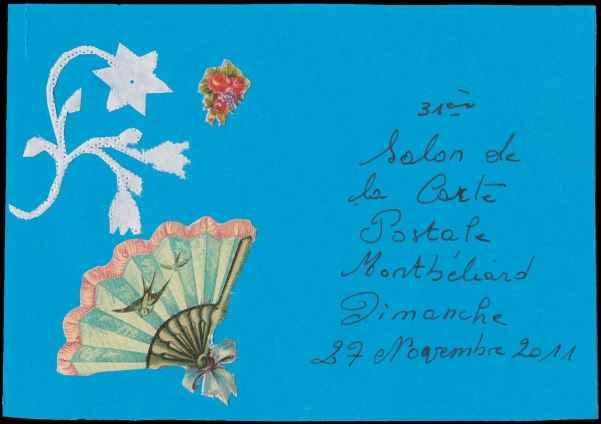 31ème
Salon de
la Carte
Postale
Montbéliard
Dimanche
27 Novembre 2011